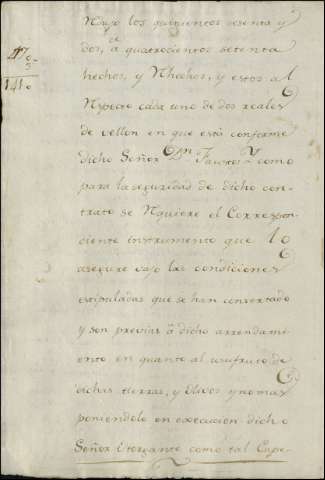 Rdujo los quinientos sesenta y
dos, a quatrocientos setenta
47
hechos, y Rhechos, y estos al
1410
Respecto cada uno de dos reales
de vellon en que està conforme
dicho Señor Dn. Y como
para la seguridad de dicho con-
trato se Rquiere el Correspon-
diente instrumento que lo
asegure vajo las condiciones
estipuladas que se han consertado
y son previas â dicho arrendami
ento en quanto al usufruto de
dichas tierras, y olivos y no mas
poniendolo en execucion dicho
Señor otorgante como tal Cape-